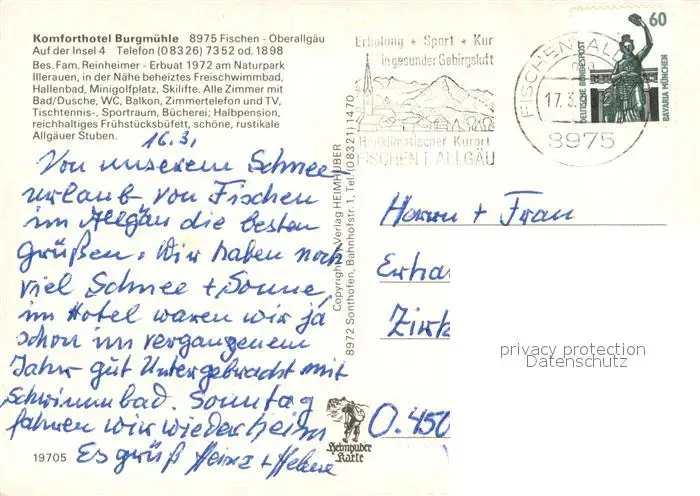 Komforthotel Burgmühle 8975 Fischen - Oberallgäu
Auf der Insel 4 Telefon (08326) 7352 od. 1898
Bes. Fam. Reinheimer - Erbuat 1972 am Naturpark
Illerauen, in der Nähe beheiztes Freischwimmbad,
Hallenbad, Minigolfplatz, Skilifte. Alle Zimmer mit
Bad/Dusche, WC, Balkon, Zimmertelefon und TV,
Tischtennis-, Sportraum, Bücherei; Halbpension,
reichhaltiges Frühstücksbüfett, schöne, rustikale
Allgäuer Stuben.
16.3.
Von unserem Schnee
urlaub von Fischen
im Allgäu die besten
Grüßen. Wir haben noch
viel Schnee + Sonne,
im Hotel waren wir ja
schon im vergangenem
Jahr gut Untergebracht mit
Schwimmbad. Sonntag
fahren wir wieder heim
Es grüß Heinz + Helene
19705
Copyright by Verlag HEIMHUBER
8972 Sonthofen, Bahnhofstr. 1, Tel. (08321) 1470
Heimhuber
Karte
Erholung + Sport + Kur
in gesunder Gebirgsluft
Heilklimatischer Kurort
FISCHEN I. ALLGÄU
FISCHEN, AL
17.3.
8975
60
DEUTSCHE BUNDESPOST
BAVARIA MÜNCHEN
Herrn + Frau
Erha
Zirk
O. 450
privacy protection
Datenschutz